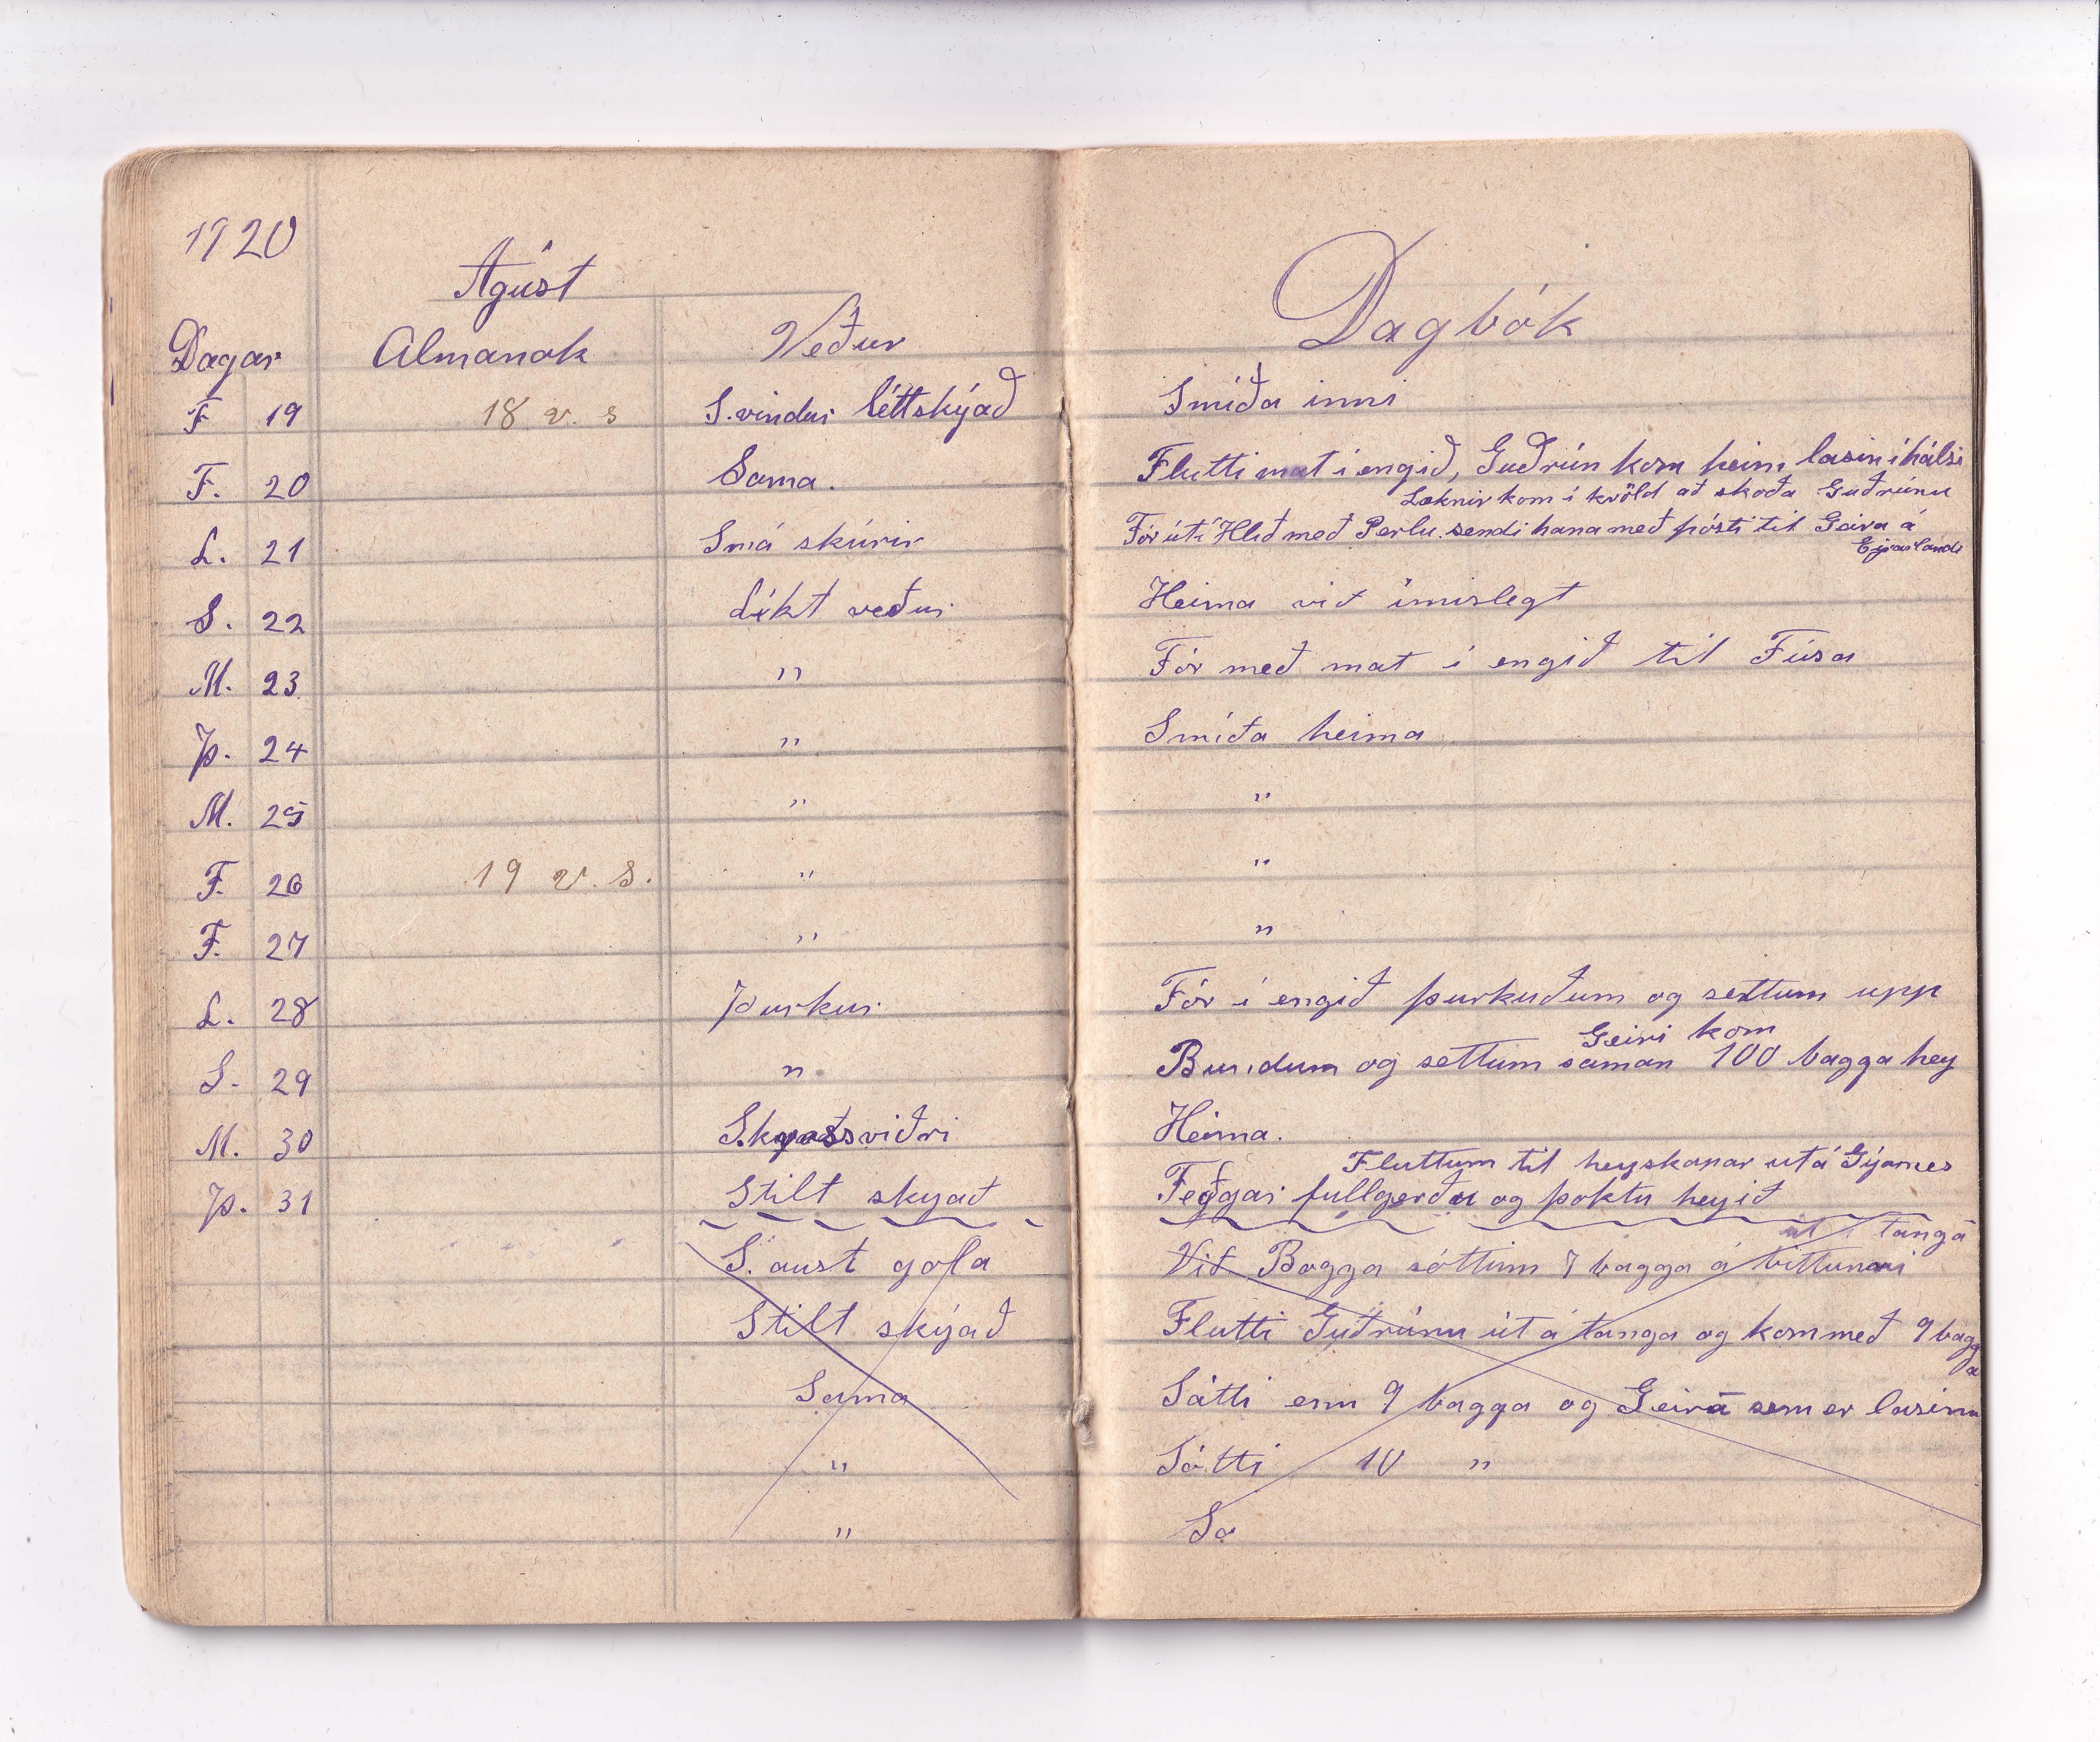 1920
Ágúst
Dagbók
Dagar Almanak Veður
F 19 18 v. s S.vindur léttskýað Smíða inni
F. 20 Sama. Flutti mat í engið, Guðrún kom heim lasin í hálsi
Læknir kom í kvöld að skoða Guðrúnu
L. 21 Smá skúrir Fór út í Hlíð með Perlu sendi hana með pósti til Geira á
Eyrarlandi
S. 22 Líkt veður Heima við ímislegt
M. 23 " Fór með mat í engið til Fúsa
Þ. 24 " Smíða heima
M. 25 " "
F. 26 19 v. s. " "
F. 27 " "
L. 28 Þurkur Fór í engið þurkuðum og settum upp
Geiri kom
S. 29 " Bundum og settum saman 100 bagga hey
M. 30 Heima.
Fluttum til heyskapar út á
Þ. 31 Stilt skyað Feðgar fullgerðu og þoktu heyið
út í tanga
S. aust gola Við Bagga sóttum 7 bagga á
Stilt skýað Flutti Guðrúnu út á tanga og kom með 9 bagga
Sama Sátti enn 9 bagga og Geira sem er lasinn
" Sótti 10 "
" So